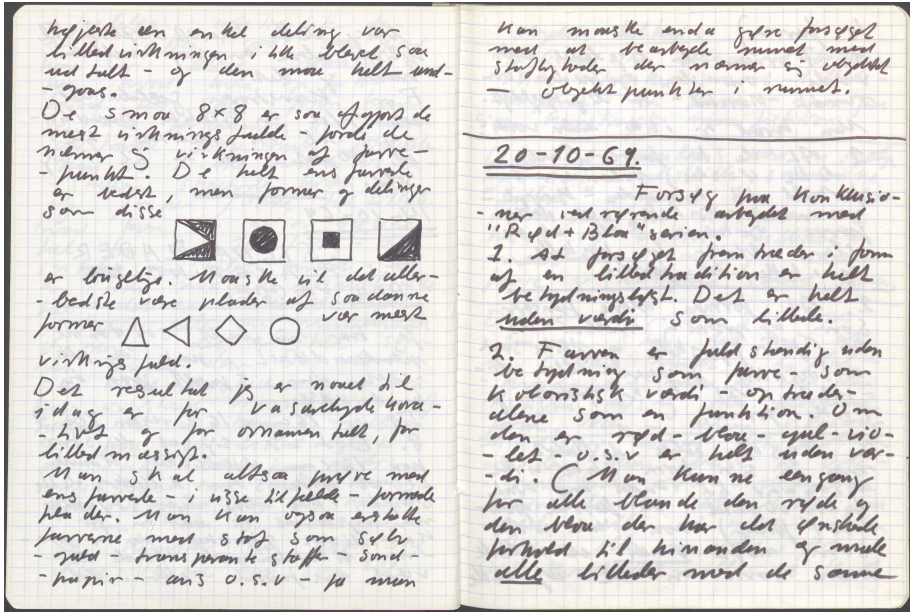 højeste en enkel deling var
billedvirkningen ikke blevet saa
udtalt - og den maa helt und-
- gaas.
De smaa 8x8 er saa afgjort de
mest virkningsfulde - fordi de
nærmer sig virkningen af farve-
- punkt. De helt ens farvede
er bedst, men former og delinger
som disse
er brugelige. Maaske vil det aller-
- bedste være plader af saadanne
former være mest
virkningsfuld.
Det resultat jeg er naaet til
idag er for
- tivt og for ornamentalt, for
billedmæssigt.
Man skal altsaa prøve med
ens farvede - i visse tilfælde - formede
plader. Man kan ogsaa erstatte
farverne med stof som sølv
- guld - transparante stoffer - sand-
- papir - o.s.v - ja man
kan maaske endda gøre forsøget
med at bearbejde rummet med
stofligheder der nærmer sig objektet
- objekt punkter i rummet.
20-10-69.
Forsøg paa konklusio-
- ner vedrørende arbejdet med
"Rød + Blaa" serien.
1. At forsøget fremtræder i form
af en billedtradition er helt
betydningsløst. Det er helt
uden værdi som billede.
2. Farven er fuldstændig uden
betydning som farve - som
koloristisk værdi - optræder
alene som en funktion. Om
den er rød - blaa - gul - vio-
- let - o.s.v er helt uden vær-
- di. (Man kunne eengang
for alle blande den røde og
den blaa der har det ønskede
forhold til hinanden og male
alle billeder med de samme